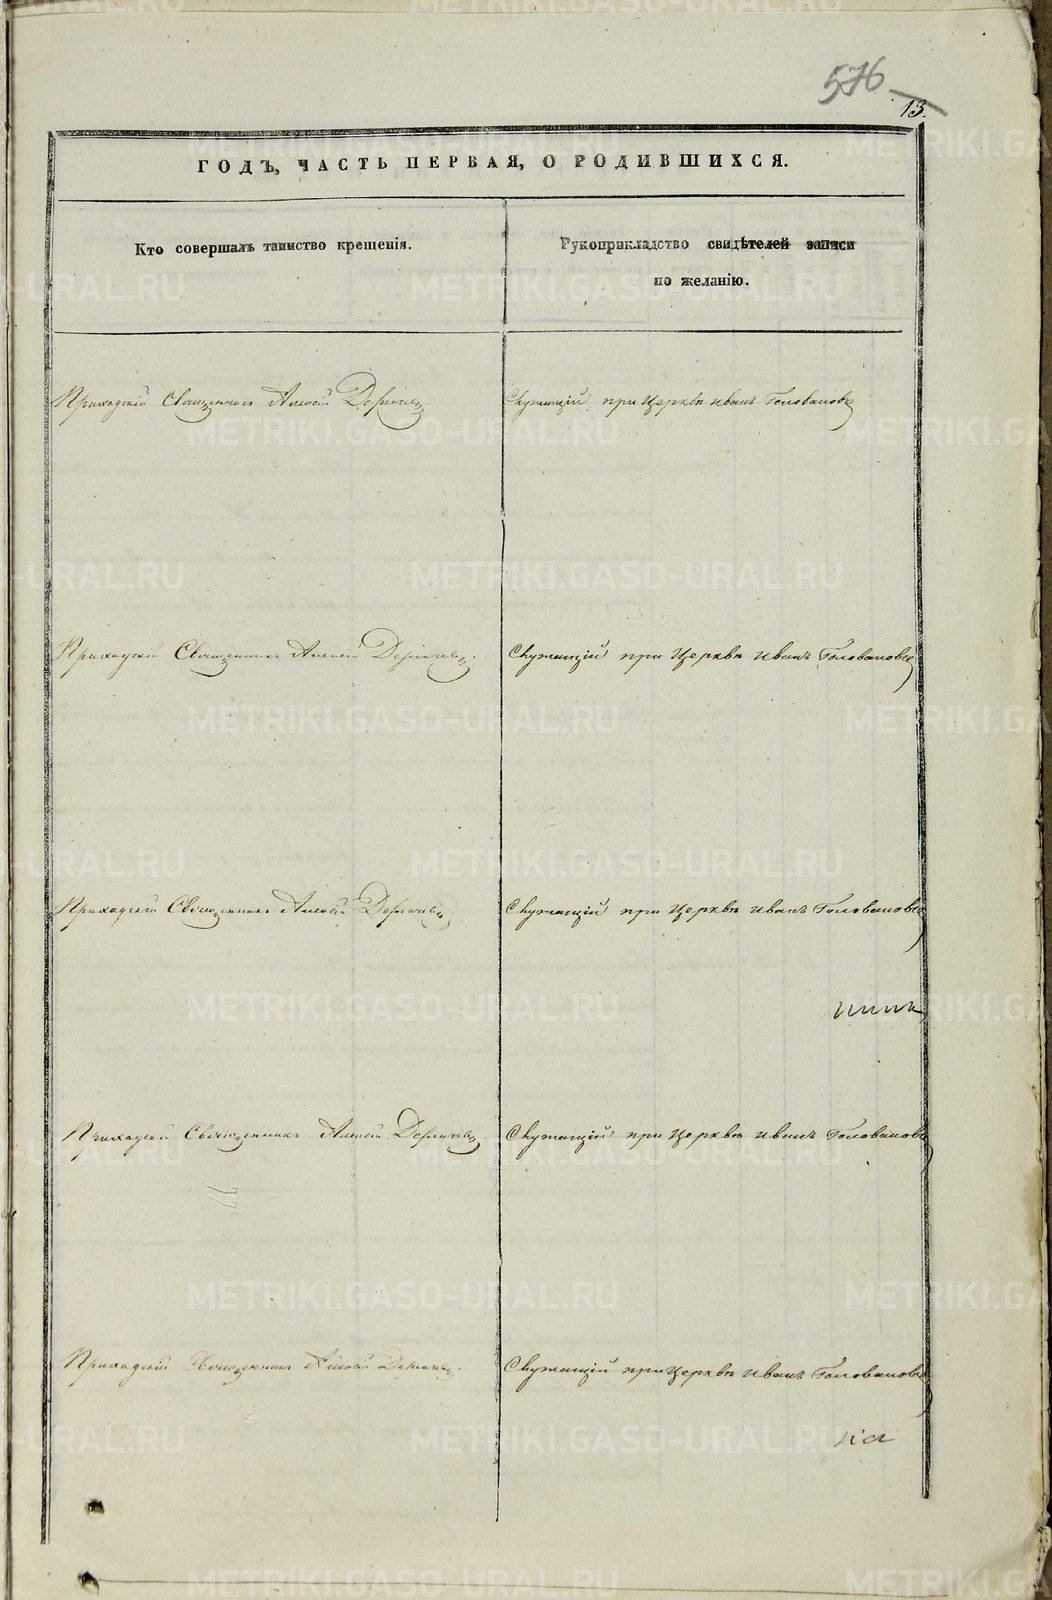 576
13.
ГОДЪ, ЧАСТЬ ПЕРВАЯ, О РОДИВШИХСЯ.
Кто совершалъ таинство крещенія.
Рукоприкладство свидѣтелей записи
по желанію.
Приходскій Священникъ Алексѣй
Служащій при Церквѣ Иванъ Головановъ
Приходскій Священникъ Алексѣй
Служащій при Церквѣ Иванъ Головановъ
Приходскій Священникъ Алексѣй
Служащій при Церквѣ Иванъ Головановъ
Приходскій Священникъ Алексѣй
Служащій при Церквѣ Иванъ Головановъ
Приходскій Священникъ Алексѣй
Служащій при Церквѣ Иванъ Головановъ
METRIKI.GASO-URAL.RU